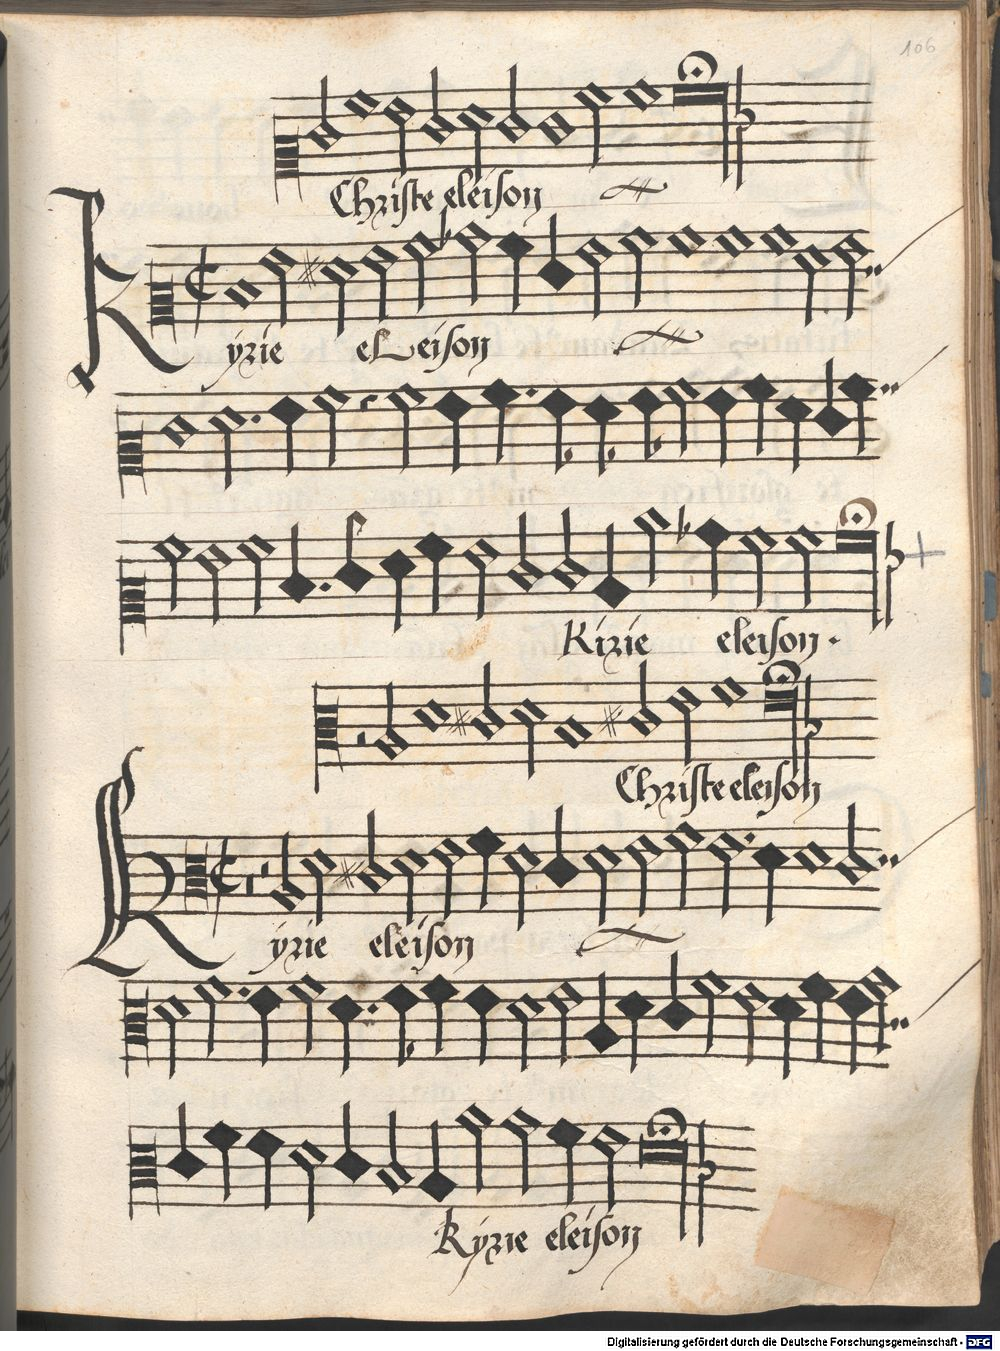 106
Christe eleison
Kyrie eLeison
Kirie eleison.
Christe eleison
Kyrie eleison
Kyrie eleison
Digitalisierung gefördert durch die Deutsche Forschungsgemeinschaft - DFG